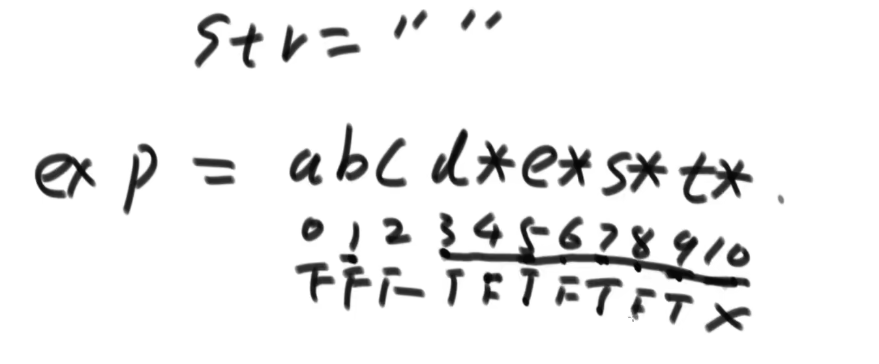 str = " "
exp = abcd*e*s*t*
0 1 2 3 4 5 6 7 8 9 10
F F F T F T F T F T X